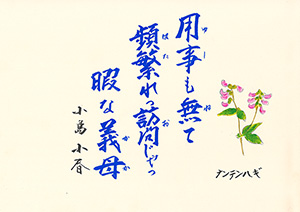 用事も無て
頻繁れっ訪問じゃっ
暇な義母
小島 小春
ナンテンハギ